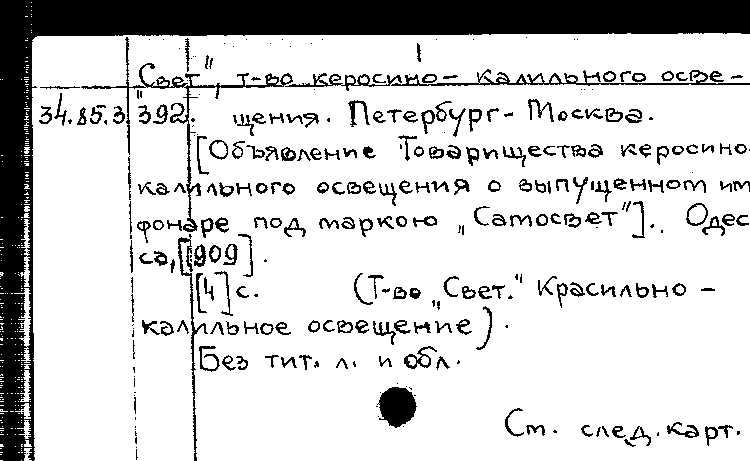 "Свет", т-во керосино-калильного осве-
34.85.3 392. щения. Петербург-Москва.
[Объявление Товарищества керосино
калильного освещения о выпущенном им
фонаре под маркою „Самосвет"]. Одес
са, [1909].
[4] с. (Т-во „Свет." Красильно-
калильное освещение).
Без тит. л. и обл.
См. след. карт.